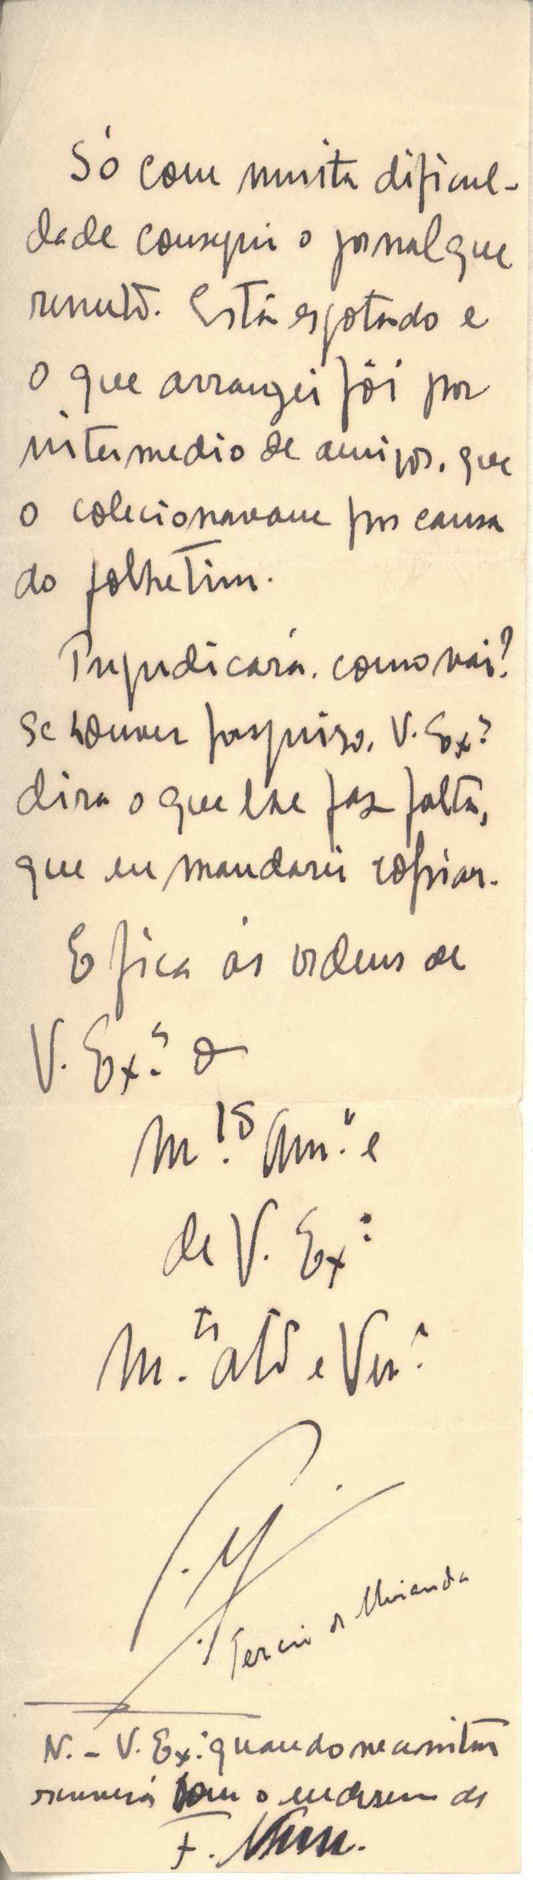 Só com muita dificul-
dade consegui o jornal que
remeto. Está esgotado e
o que arrangei fôi por
intermedio de amigos, que
o colecionavam por causa
do folhetim.
Prejudicará, como vai?
Se houver pesquiso, V. Ex.ª
dira o que lhe faz falta,
que eu mandarei copiar.
E fica ás ordens de
V. Ex.ª o
m.to Am.º e
de V. Ex.ª
M.to at.º e Ven.
Tercio de Miranda
N. - V. Ex.ª quando necessitar
escreverá com o endereço de
T.